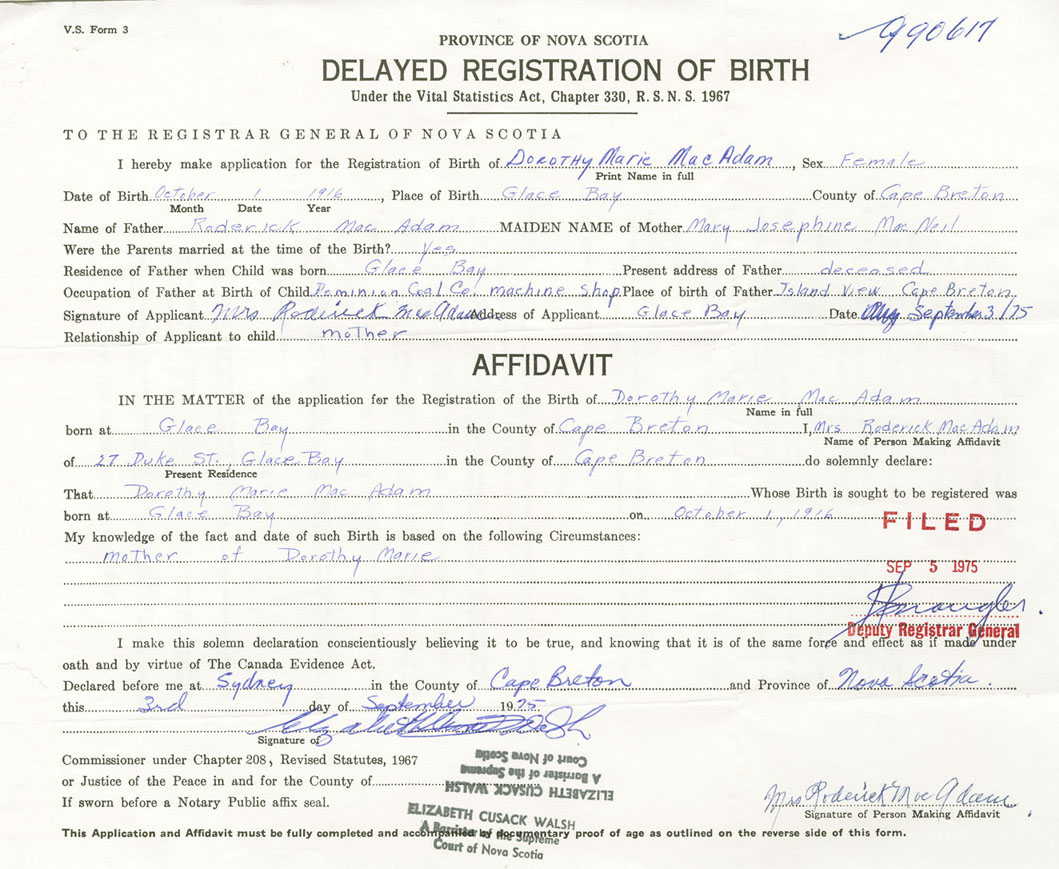 V.S. Form 3
990617
PROVINCE OF NOVA SCOTIA
DELAYED REGISTRATION OF BIRTH
Under the Vital Statistics Act, Chapter 330, R. S. N. S. 1967
TO THE REGISTRAR GENERAL OF NOVA SCOTIA
I hereby make application for the Registration of Birth of Dorothy Marie Mac Adam, Sex Female
Print Name in full
Date of Birth October 1 1916, Place of Birth Glace Bay County of Cape Breton
Month Date Year
Name of Father Roderick Mac Adam MAIDEN NAME of Mother Mary Josephine Mac Neil
Were the Parents married at the time of the Birth? Yes
Residence of Father when Child was born Glace Bay Present address of Father deceased
Occupation of Father at Birth of Child Dominion Coal Co. machine shop Place of birth of Father Island View, Cape Breton
Signature of Applicant Mrs Roderick MacAdam Address of Applicant Glace Bay Date September 3/75
Relationship of Applicant to child mother
AFFIDAVIT
IN THE MATTER of the application for the Registration of the Birth of Dorothy Marie Mac Adam
Name in full
born at Glace Bay in the County of Cape Breton I, Mrs Roderick Mac Adam
Name of Person Making Affidavit
of 27 Duke St., Glace Bay in the County of Cape Breton do solemnly declare:
Present Residence
That Dorothy Marie Mac Adam Whose Birth is sought to be registered was
born at Glace Bay on October 1, 1916
FILED
My knowledge of the fact and date of such Birth is based on the following Circumstances:
mother of Dorothy Marie
SEP 5 1975
Deputy Registrar General
I make this solemn declaration conscientiously believing it to be true, and knowing that it is of the same force and effect as if made under
oath and by virtue of The Canada Evidence Act.
Declared before me at Sydney in the County of Cape Breton and Province of Nova Scotia.
this 3rd day of September 1975.
Elizabeth Cusack Walsh
Signature of
Commissioner under Chapter 208, Revised Statutes, 1967
or Justice of the Peace in and for the County of
If sworn before a Notary Public affix seal.
ELIZABETH CUSACK WALSH
A Barrister of the Supreme
Court of Nova Scotia
Mrs Roderick MacAdam
Signature of Person Making Affidavit
ELIZABETH CUSACK WALSH
A Barrister of the Supreme
Court of Nova Scotia
This Application and Affidavit must be fully completed and accompanied by documentary proof of age as outlined on the reverse side of this form.